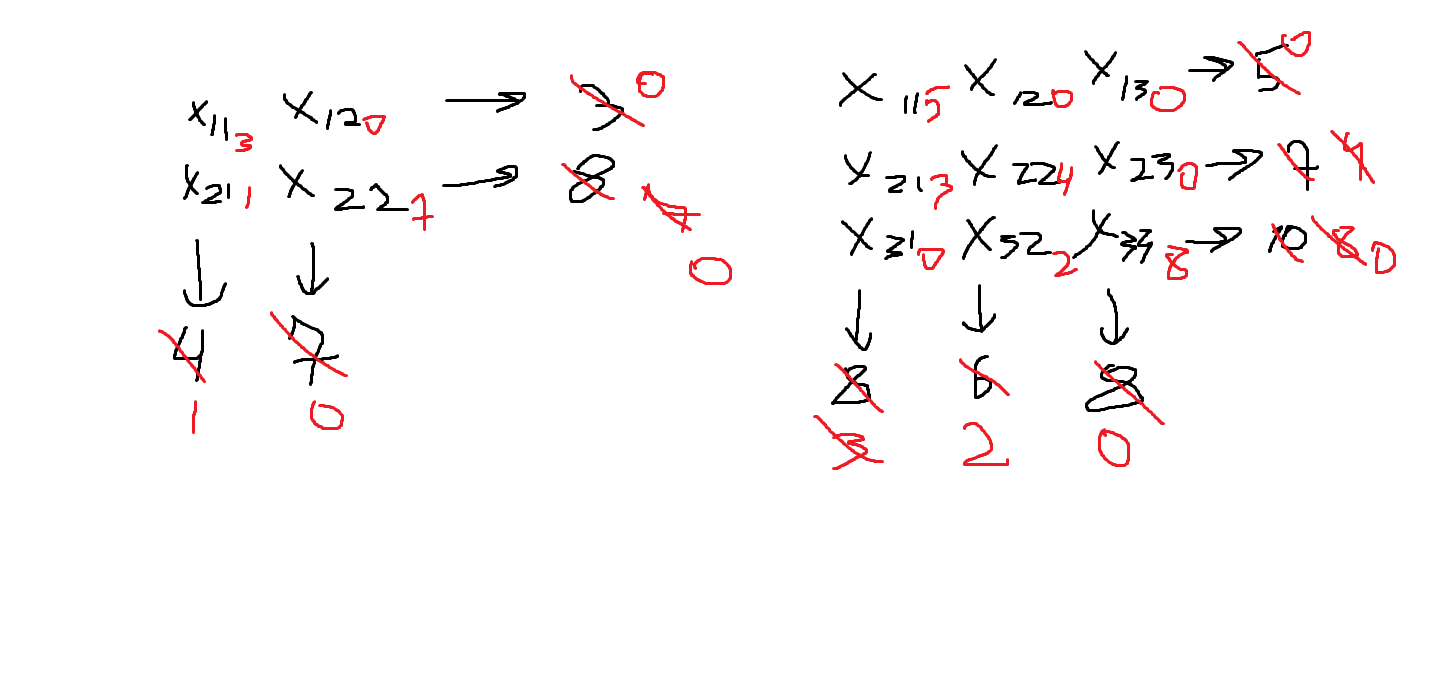 x11 3 x12 0 → 3 0
x21 1 x22 7 → 8 7 0
4 7
1 0
x11 5 x12 0 x13 0 → 5 0
x21 3 x22 4 x23 0 → 7 4
x31 0 x32 2 x33 8 → 10 8 0
8 6 8
3 2 0